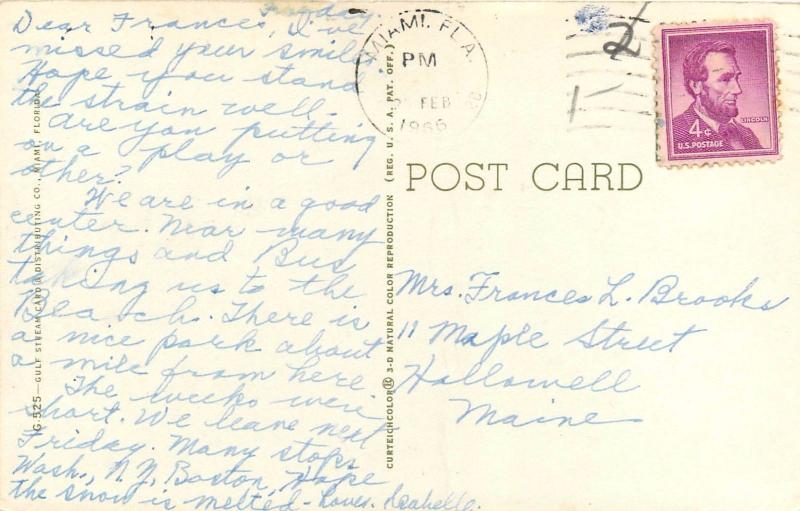 Friday
Dear Frances, I've
missed your smile.
Hope you stand
the strain well.
Are you putting
on a play or
other?
We are in a good
center. Near many
things and Bus
taking us to the
Beach. There is
a nice park about
a mile from here
The weeks were
short. We leave next
Friday. Many stops
Wash., N.Y, Boston, Hope
the snow is melted - Love. Isabelle.
G-525—GULF STREAM CARD & DISTRIBUTING CO., MIAMI, FLORIDA
CURTEICHCOLOR® 3-D NATURAL COLOR REPRODUCTION (REG. U. S. A. PAT. OFF.)
MIAMI, FLA.
PM
FEB
1966
2
4¢
LINCOLN
U.S. POSTAGE
POST CARD
Mrs. Frances L. Brooks
11 Maple Street
Hallowell
Maine